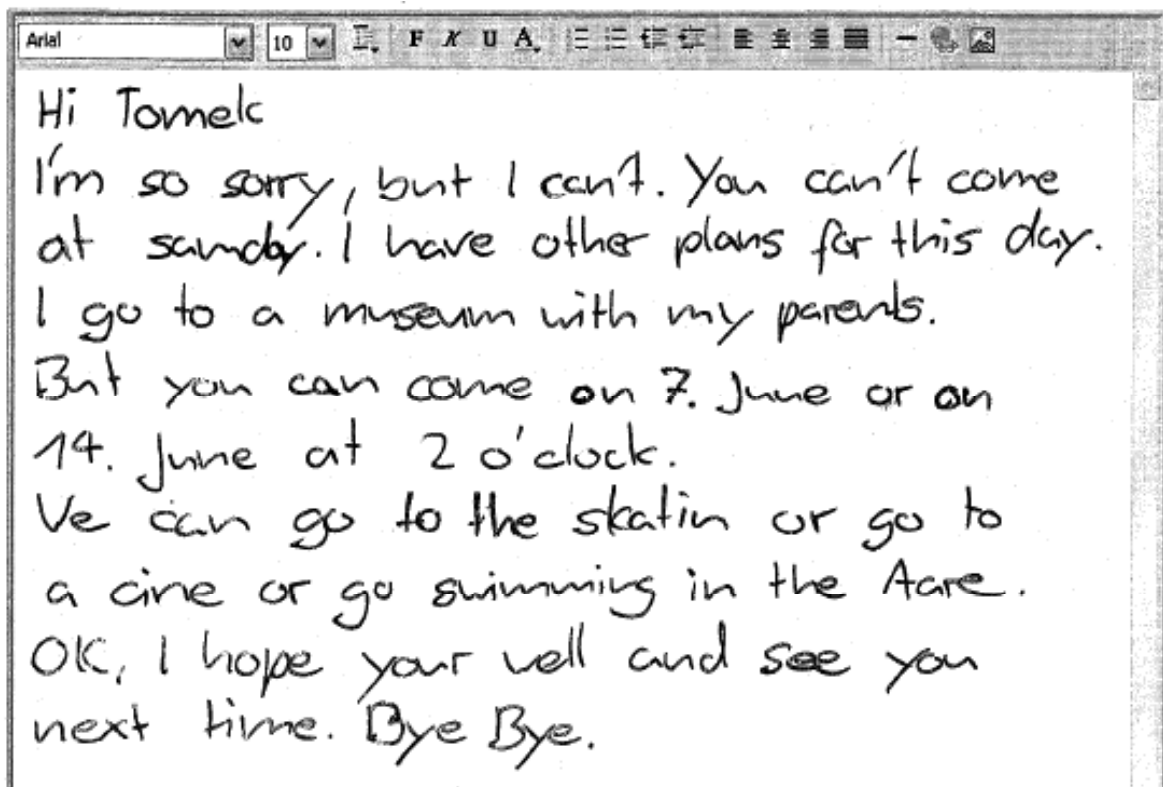 Arial 10 F K U A
Hi Tomek
I'm so sorry, but I can't. You can't come
at sunday. I have other plans for this day.
I go to a museum with my parents.
But you can come on 7. June or on
14. June at 2 o'clock.
Ve can go to the skatin or go to
a cine or go swimming in the Aare.
OK, I hope your well and see you
next time. Bye Bye.